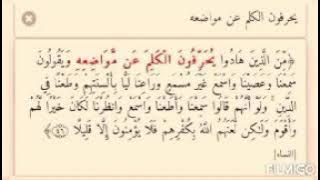 يحرفون الكلم عن مواضعه
﴿مِّنَ الَّذِينَ هَادُوا يُحَرِّفُونَ الْكَلِمَ عَن مَّوَاضِعِهِ وَيَقُولُونَ
سَمِعْنَا وَعَصَيْنَا وَاسْمَعْ غَيْرَ مُسْمَعٍ وَرَاعِنَا لَيًّا بِأَلْسِنَتِهِمْ وَطَعْنًا فِي
الدِّينِ وَلَوْ أَنَّهُمْ قَالُوا سَمِعْنَا وَأَطَعْنَا وَاسْمَعْ وَانظُرْنَا لَكَانَ خَيْرًا لَّهُمْ
وَأَقْوَمَ وَلَٰكِن لَّعَنَهُمُ اللَّهُ بِكُفْرِهِمْ فَلَا يُؤْمِنُونَ إِلَّا قَلِيلًا ٤٦﴾
[النساء]
FILMIGO